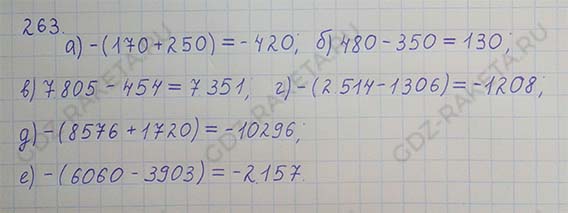 263.
а) -(170+250) = -420; б) 480-350 = 130;
в) 7805 - 454 = 7351; г) -(2.514-1306) = -1208;
д) -(8576 + 1720) = -10296;
е) -(6060 - 3903) = -2.157.
GDZ-RAKETA.RU
GDZ-RAKETA.RU
GDZ-RAKETA.RU